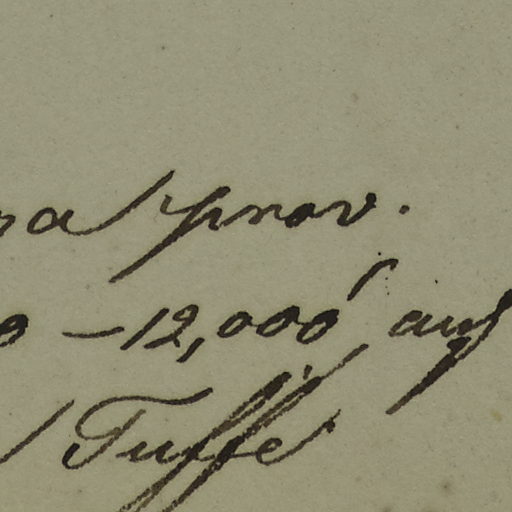 prov.
–12,000' auf
Tuffe